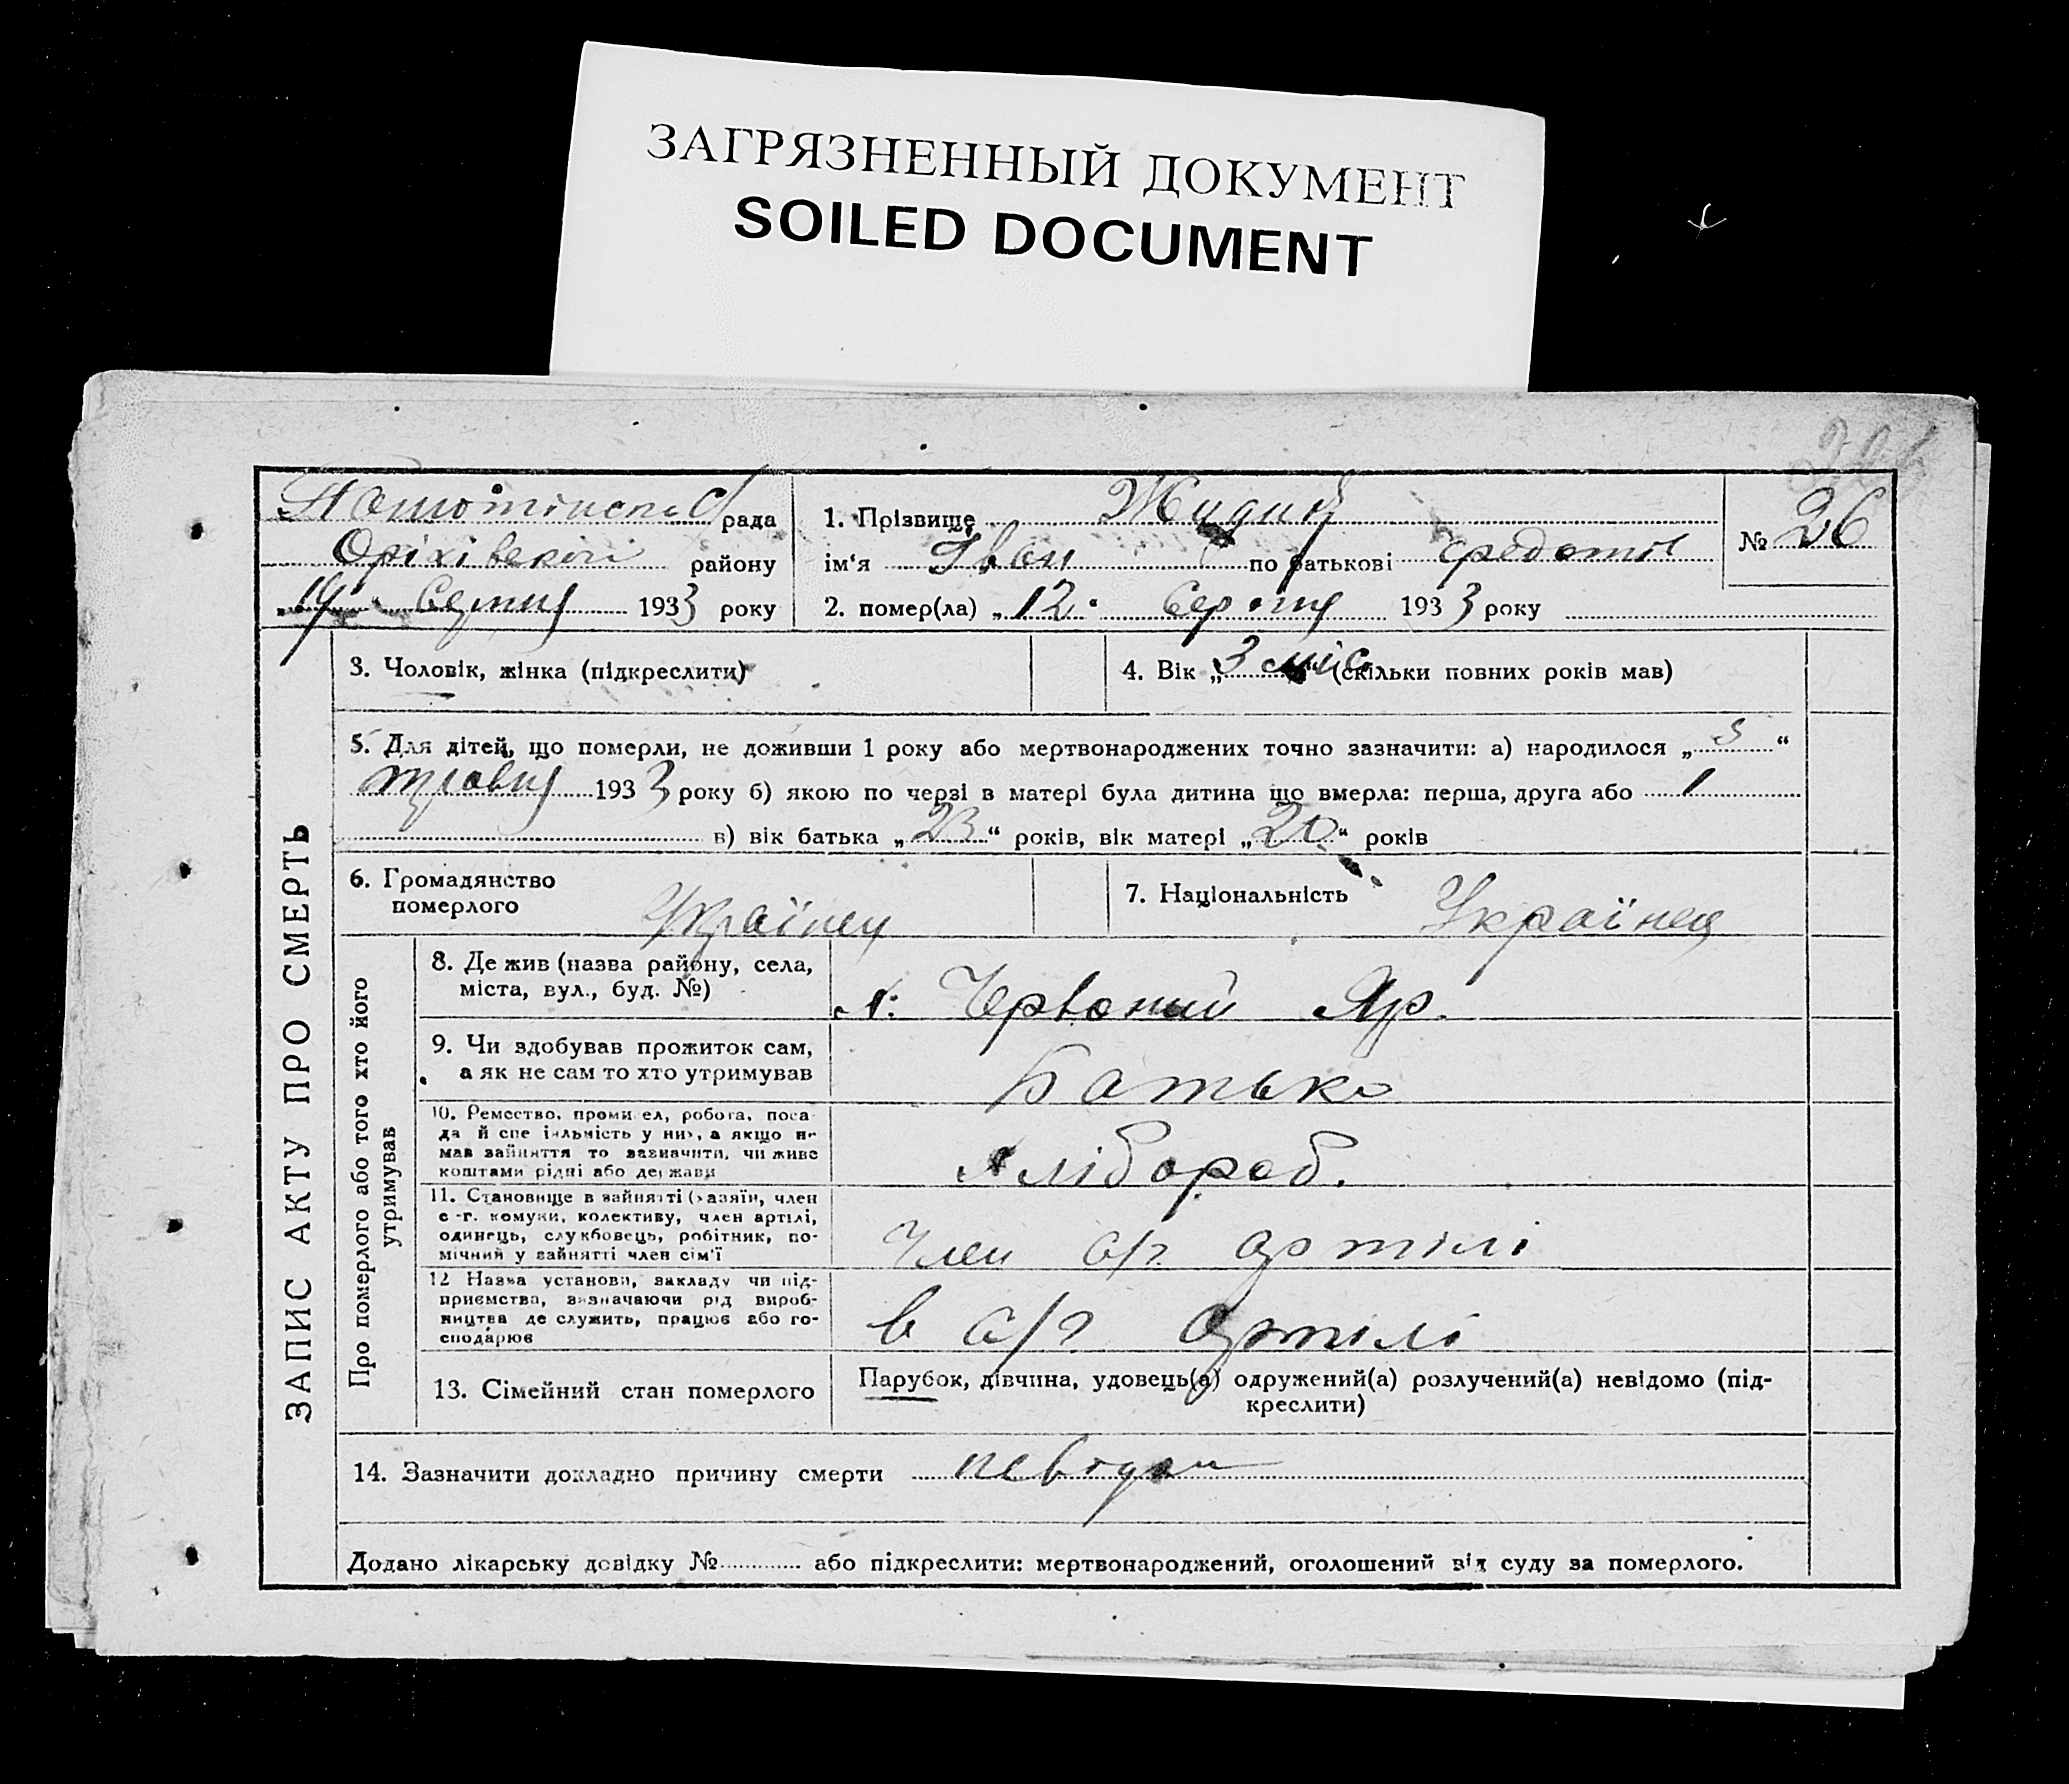 ЗАГРЯЗНЕННЫЙ ДОКУМЕНТ
SOILED DOCUMENT
рада
Оріхівської району
"14" Серпня 1933 року
1. Прізвище
ім'я Іван по батькові
2. помер(ла) "12" Серпня 1933 року
№ 26
ЗАПИС АКТУ ПРО СМЕРТЬ
3. Чоловік, жінка (підкреслити)
4. Вік "3 міс" (скільки повних років мав)
5. Для дітей, що померли, не доживши 1 року або мертвонароджених точно зазначити: а) народилося "
травня 1933 року б) якою по черзі в матері була дитина що вмерла: перша, друга або 1
в) вік батька "23" років, вік матері "20" років
6. Громадянство
померлого Українец
7. Національність Українец
Про померлого або того хто його
утримував
8. Де жив (назва району, села,
міста, вул., буд. №)
х. Червоний Яр.
9. Чи здобував прожиток сам,
а як не сам то хто утримував
Батько
10. Ремество, промисел, робота, поса-
да й спеціяльність у них, а якщо не
мав зайняття то зазначити, чи живе
коштами рідні або держави
хлібороб.
11. Становище в зайнятті (хазяїн, член
с.-г. комуни, колективу, член артілі,
одинець, службовець, робітник, по-
мічний у зайнятті член сім'ї
Член с/г артілі
12 Назва установи, закладу чи під-
приємства, визначаючи рід вироб-
ництва де служить, працює або го-
сподарює
в с/г артілі
13. Сімейний стан померлого
Парубок, дівчина, удовець(а) одружений(а) розлучений(а) невідомо (під-
креслити)
14. Зазначити докладно причину смерти
Додано лікарську довідку № або підкреслити: мертвонароджений, оголошений від суду за померлого.